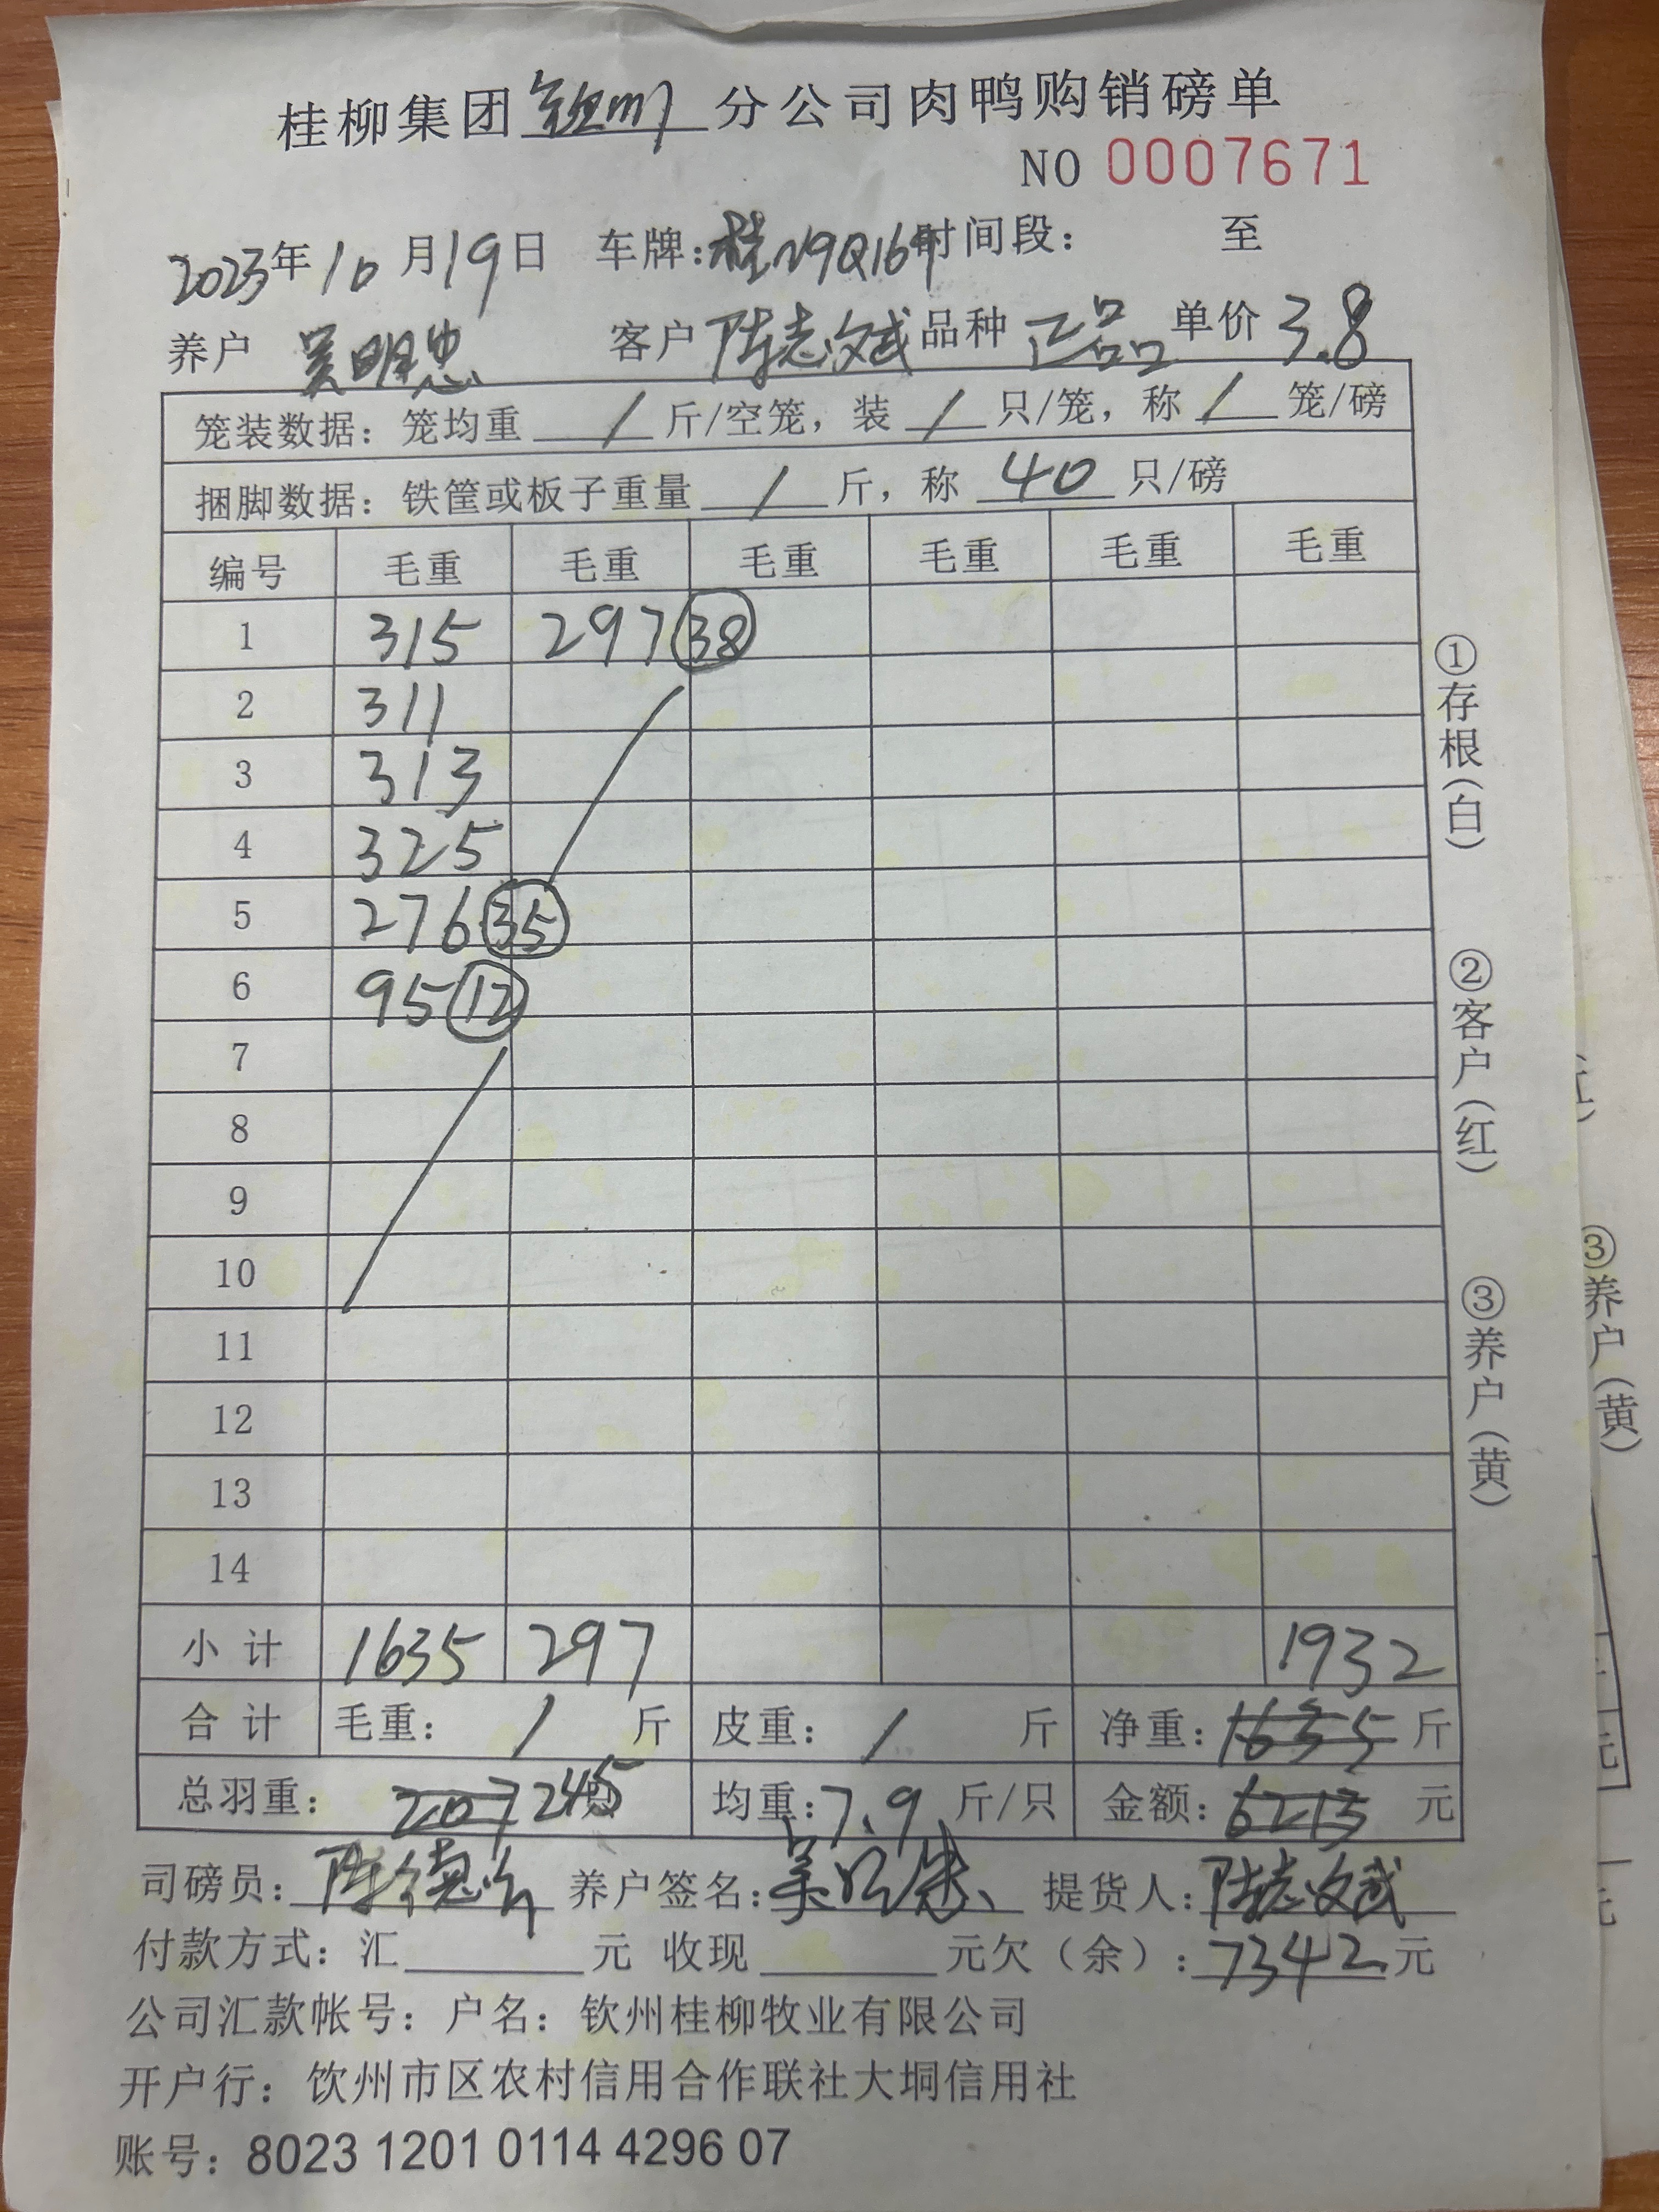 桂柳集团钦州分公司肉鸭购销磅单
NO 0007671
2023年10月19日 车牌:桂N9Q169时间段: 至
养户 吴明忠 客户 陈志斌 品种 正品 单价 3.8
笼装数据: 笼均重 / 斤/空笼, 装 / 只/笼, 称 / 笼/磅
捆脚数据: 铁筐或板子重量 / 斤, 称 40 只/磅
编号 毛重 毛重 毛重 毛重 毛重 毛重
1 315 297 38
2 311
3 313
4 325
5 276 35
6 95 12
7
8
9
10
11
12
13
14
小计 1635 297 1932
合计 毛重: / 斤 皮重: / 斤 净重: 1635 斤
总羽重: 207 245 均重: 7.9 斤/只 金额: 6213 元
司磅员: 陈德 养户签名: 吴明忠 提货人: 陈志斌
付款方式: 汇 元 收现 元欠(余): 7342元
公司汇款帐号: 户名: 钦州桂柳牧业有限公司
开户行: 钦州市区农村信用合作联社大垌信用社
账号: 8023 1201 0114 4296 07
①存根(白)
②客户(红)
③养户(黄)
③养户(黄)